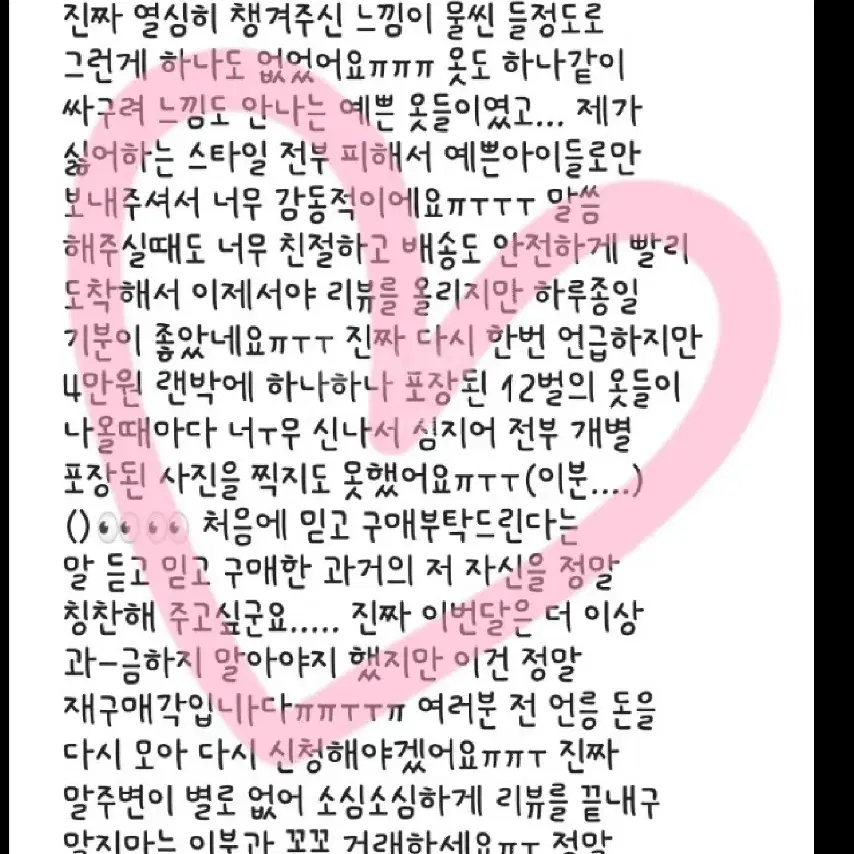 진짜 열심히 챙겨주신 느낌이 물씬 들정도로
그런게 하나도 없었어요ㅠㅠㅠ 옷도 하나같이
싸구려 느낌도 안나는 예쁜 옷들이였고... 제가
싫어하는 스타일 전부 피해서 예쁜아이들로만
보내주셔서 너무 감동적이에요ㅠㅜㅜㅜ 말씀
해주실때도 너무 친절하고 배송도 안전하게 빨리
도착해서 이제서야 리뷰를 올리지만 하루종일
기분이 좋았네요ㅠㅜㅜ 진짜 다시 한번 언급하지만
4만원 랜박에 하나하나 포장된 12벌의 옷들이
나올때마다 너ㅜ우 신나서 심지어 전부 개별
포장된 사진을 찍지도 못했어요ㅠㅜㅜ(이분....)
()👀👀 처음에 믿고 구매부탁드린다는
말 듣고 믿고 구매한 과거의 저 자신을 정말
칭찬해 주고싶군요..... 진짜 이번달은 더 이상
과-금하지 말아야지 했지만 이건 정말
재구매각입니ㅏ다ㅠㅠㅜㅜㅠ 여러분 전 언릉 돈을
다시 모아 다시 신청해야겠어요ㅠㅠㅜ 진짜
말주변이 별로 없어 소심소심하게 리뷰를 끝내구
말지마느 이분과 꼬꼬 거래하세요ㅠㅜ 정말